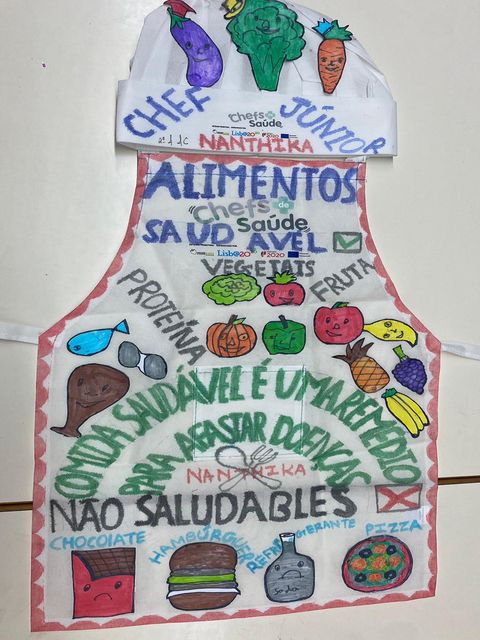 CHEF JÚNIOR
Chefs de Saúde
Lisb@20²⁰ 2020
NANTHIKA
ALIMENTOS
Chefs de Saúde
SAUDAVEL
Lisb@20²⁰ 2020
VEGETAIS
PROTEÍNA
FRUTA
COMIDA SAUDÁVEL É UMA REMÉDIO
PARA AFASTAR DOENÇAS
NANTHIKA
NÃO SALUDABLES
CHOCOLATE
HAMBÚRGUER
REFRIGERANTE
PIZZA